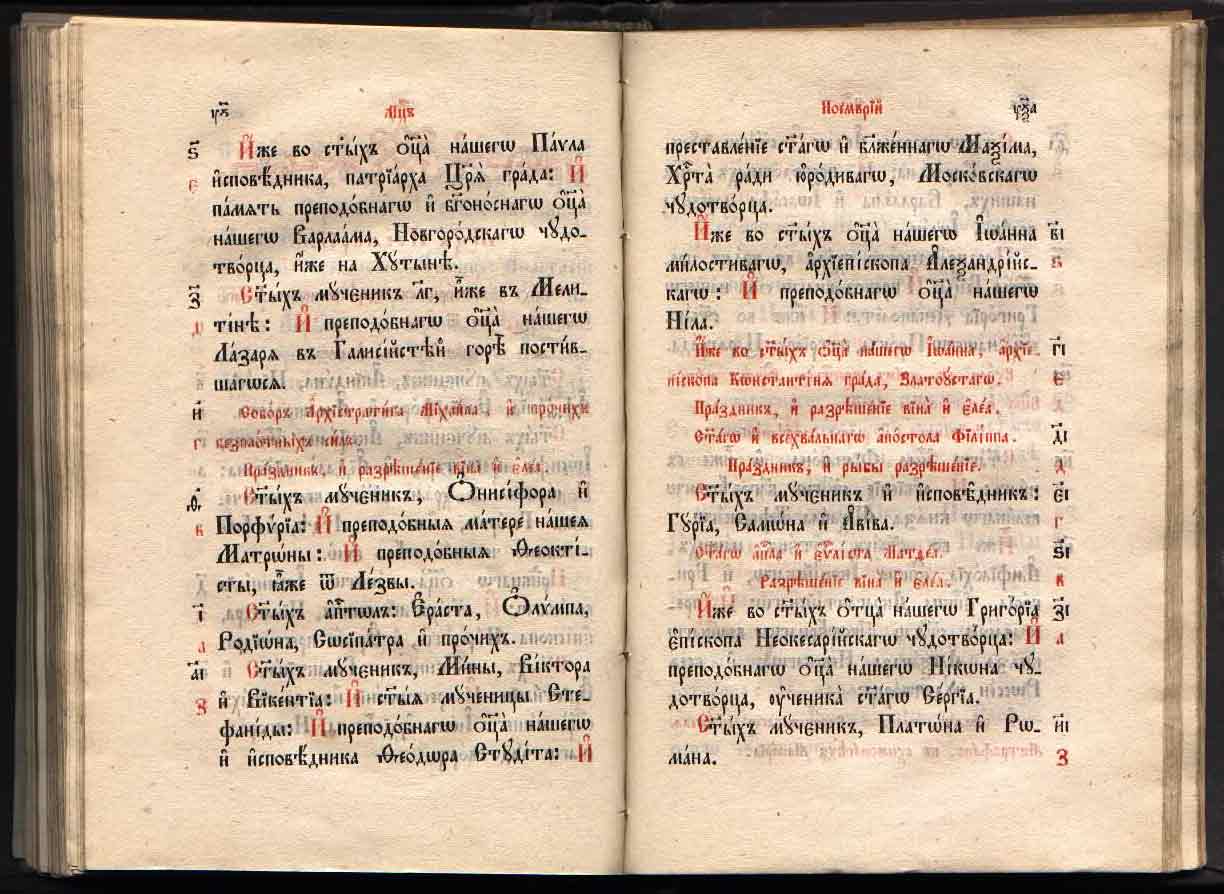 Мцⷭ҇ъ
ѕ҃ И҆́же во ст҃ы́хъ ѻ҆ц҃а̀ на́шегѡ Па́ѵла
є и҆сповѣ́дника, патрїа́рха Цр҃ѧ̀ гра́да: И҆
па́мѧть преподо́бнагѡ и҆ бг҃оно́снагѡ ѻ҆ц҃а̀
на́шегѡ Варлаа́ма, Новгоро́дскагѡ чꙋдо-
тво́рца, и҆́же на Хꙋ́тынѣ.
з҃ Ст҃ы́хъ мꙋ́ченик л҃г, и҆̀же въ Мели-
д ті́нѣ: И҆ преподо́бнагѡ ѻ҆ц҃а̀ на́шегѡ
Ла́зарѧ въ Галисі́йстѣй горѣ̀ пости́в-
шагѡсѧ.
и҃ Собо́ръ а҆рхїстрати́га Мїхаи́ла и҆ про́чихъ
г безпло́тныхъ си́лъ.
Пра́здникъ, и҆ разрѣше́нїе вїна̀ и҆ є҆ле́а.
ѳ҃ Ст҃ы́хъ мꙋ́ченикъ, Ѻ҆ниси́фора и҆
в Порфѵ́рїа: И҆ преподо́бныѧ ма́тере на́шеѧ
Матрѡ́ны: И҆ преподо́бныѧ Ѳеокті́-
сты, ꙗ҆́же ѿ Ле́звы.
і҃ Ст҃ы́хъ а҆пⷭ҇толъ: Є҆ра́ста, Ѻ҆лѵ́мпа,
а Родїѡ́на, Сѡсїпа́тра и҆ про́чихъ.
а҃і Ст҃ы́хъ мꙋ́ченикъ, Ми́ны, Ві́ктора
з и҆ Вїке́нтїа: И҆ ст҃ы́ѧ мꙋ́ченицы Сте-
фані́ды: И҆ преподо́бнагѡ ѻ҆ц҃а̀ на́шегѡ
и҆ и҆сповѣ́дника Ѳео́дѡра Стꙋді́та: И҆
Ное́мврїй ꙋ҃ѯа
преставле́нїе ст҃а́гѡ и҆ бл҃же́ннагѡ Маѯі́ма,
Хрⷭ҇та̀ ра́ди ю҆ро́дивагѡ, Моско́вскагѡ
чꙋдотво́рца.
И҆́же во ст҃ы́хъ ѻ҆ц҃а̀ на́шегѡ І҆ѡа́нна в҃і
ми́лостивагѡ, а҆рхїепі́скопа А҆леѯандрі́йс- в
кагѡ: И҆ преподо́бнагѡ ѻ҆ц҃а̀ на́шегѡ
Ні́ла.
И҆́же во ст҃ы́хъ ѻ҆ц҃а̀ на́шегѡ І҆ѡа́нна, а҆рхїе- г҃і
пі́скопа Кѡнстанті́нѧ гра́да, Златоꙋ́стагѡ. є
Пра́здникъ, и҆ разрѣше́нїе вїна̀ и҆ є҆ле́а.
Ст҃а́гѡ и҆ всехва́льнагѡ а҆по́стола Філі́ппа. д҃і
Пра́здникъ, и҆ ры́бы разрѣше́нїе. д
Ст҃ы́хъ мꙋ́ченикъ и҆ и҆сповѣ́дникъ: є҃і
Гꙋ́рїа, Самѡ́на и҆ А҆ві́ва. г
Ст҃а́гѡ а҆пⷭ҇ла и҆ є҆ѵⷢ҇лі́ста Матѳе́а. ѕ҃і
Разрѣше́нїе вїна̀ и҆ є҆ле́а. в
И҆́же во ст҃ы́хъ ѻ҆тц҃а̀ на́шегѡ Григо́рїа з҃і
є҆пі́скопа Неокесарі́йскагѡ чꙋдотво́рца: И҆ а
преподо́бнагѡ ѻ҆ц҃а̀ на́шегѡ Ні́кѡна чꙋ-
дотво́рца, ᲂу҆ченика̀ ст҃а́гѡ Се́ргїа.
Ст҃ы́хъ мꙋ́ченикъ, Пла́тѡна и҆ Рѡ- и҃і
ма́на. з